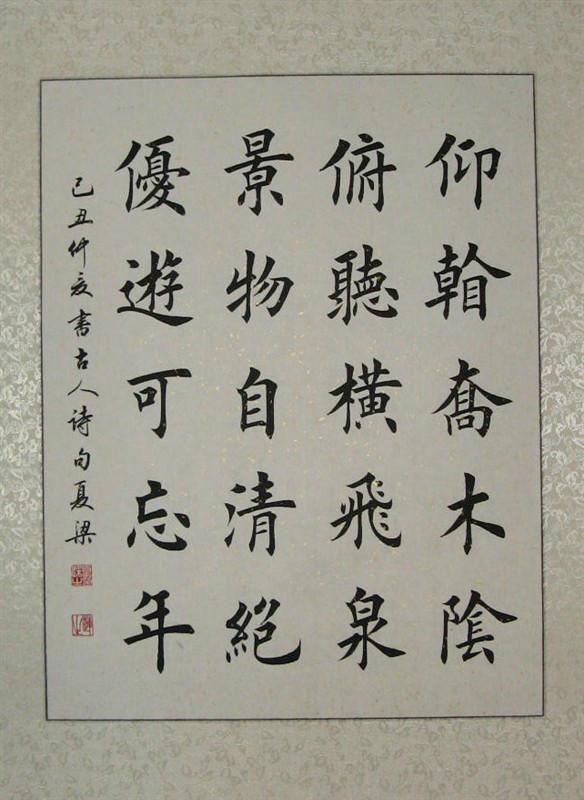 仰喬木陰
俯聽橫飛泉
景物自清絕
優遊可忘年
己丑仲夏書古人诗句夏梁